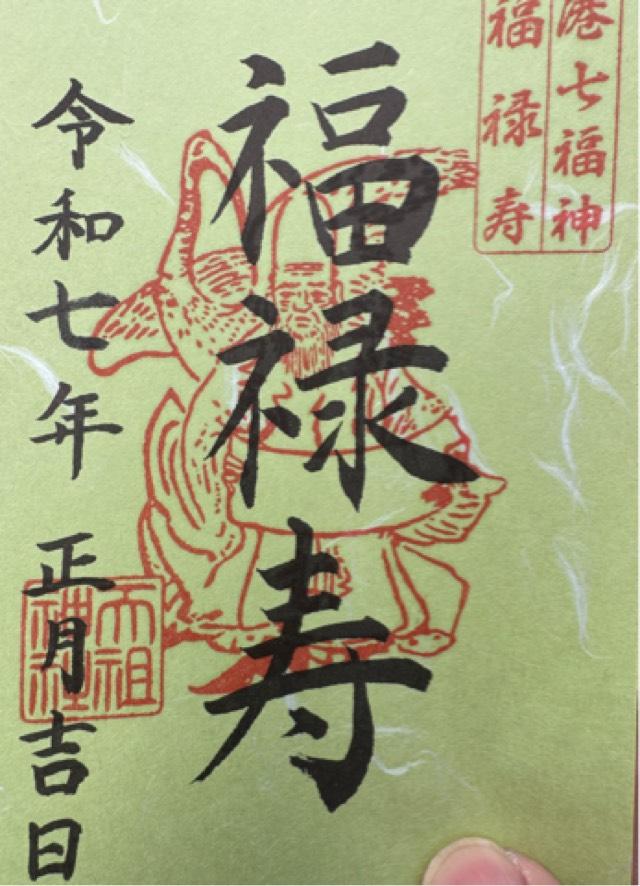 港七福神
福禄寿
福禄寿
令和七年 正月吉日
天祖神社